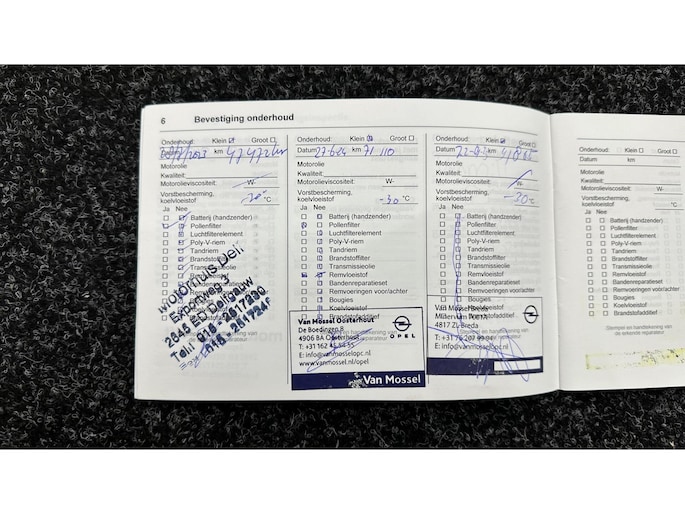 6 Bevestiging onderhoud
Onderhoud: Klein Groot
km 47472
Motorolie
Kwaliteit:
Motorolieviscositeit: W-
Vorstbescherming,
koelvloeistof °C
Ja Nee
Batterij (handzender)
Pollenfilter
Luchtfilterelement
Poly-V-riem
Tandriem
Brandstoffilter
Transmissieolie
Remvloeistof
Motorhuis Delft
Exportweg 3
2645 ED Delfgauw
Onderhoud: Klein Groot
Datum 27-6-24 km 71 110
Motorolie
Kwaliteit:
Motorolieviscositeit: W-
Vorstbescherming,
koelvloeistof -30 °C
Ja Nee
Batterij (handzender)
Pollenfilter
Luchtfilterelement
Poly-V-riem
Tandriem
Brandstoffilter
Transmissieolie
Remvloeistof
Bandenreparatieset
Remvoeringen voor/achter
Bougies
Koelvloeistof
Brandstofadditief
Van Mossel Oosterhout
De Boedingen 8
4906 BA Oosterhout
E: info@vanmosselopc.nl
www.vanmossel.nl/opel
OPEL
Van Mossel
Onderhoud: Klein Groot
Datum km
Motorolie
Kwaliteit:
Motorolieviscositeit: W-
Vorstbescherming,
koelvloeistof -30 °C
Ja Nee
Batterij (handzender)
Pollenfilter
Luchtfilterelement
Poly-V-riem
Tandriem
Brandstoffilter
Transmissieolie
Remvloeistof
Bandenreparatieset
Remvoeringen voor/achter
Bougies
Koelvloeistof
Brandstofadditief
Van Mossel Breda
4817 ZL Breda
E: info@vanmosselopc.nl
OPEL
Onderhoud: Klein Groot
Datum km
Motorolie
Kwaliteit:
Motorolieviscositeit: W-
Vorstbescherming,
koelvloeistof °C
Ja Nee
Batterij (handzender)
Pollenfilter
Luchtfilterelement
Poly-V-riem
Tandriem
Brandstoffilter
Transmissieolie
Remvloeistof
Bandenreparatieset
Remvoeringen voor/achter
Bougies
Koelvloeistof
Brandstofadditief
Stempel en handtekening van
de erkende reparateur